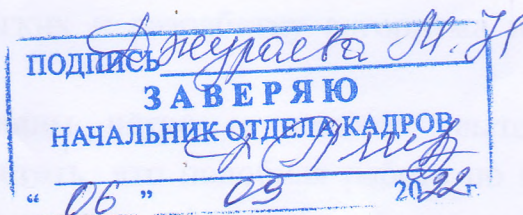 ПОДПИСЬ Джураева М.Н
ЗАВЕРЯЮ
НАЧАЛЬНИК ОТДЕЛА КАДРОВ
“ 06 ” 09 2022 г.